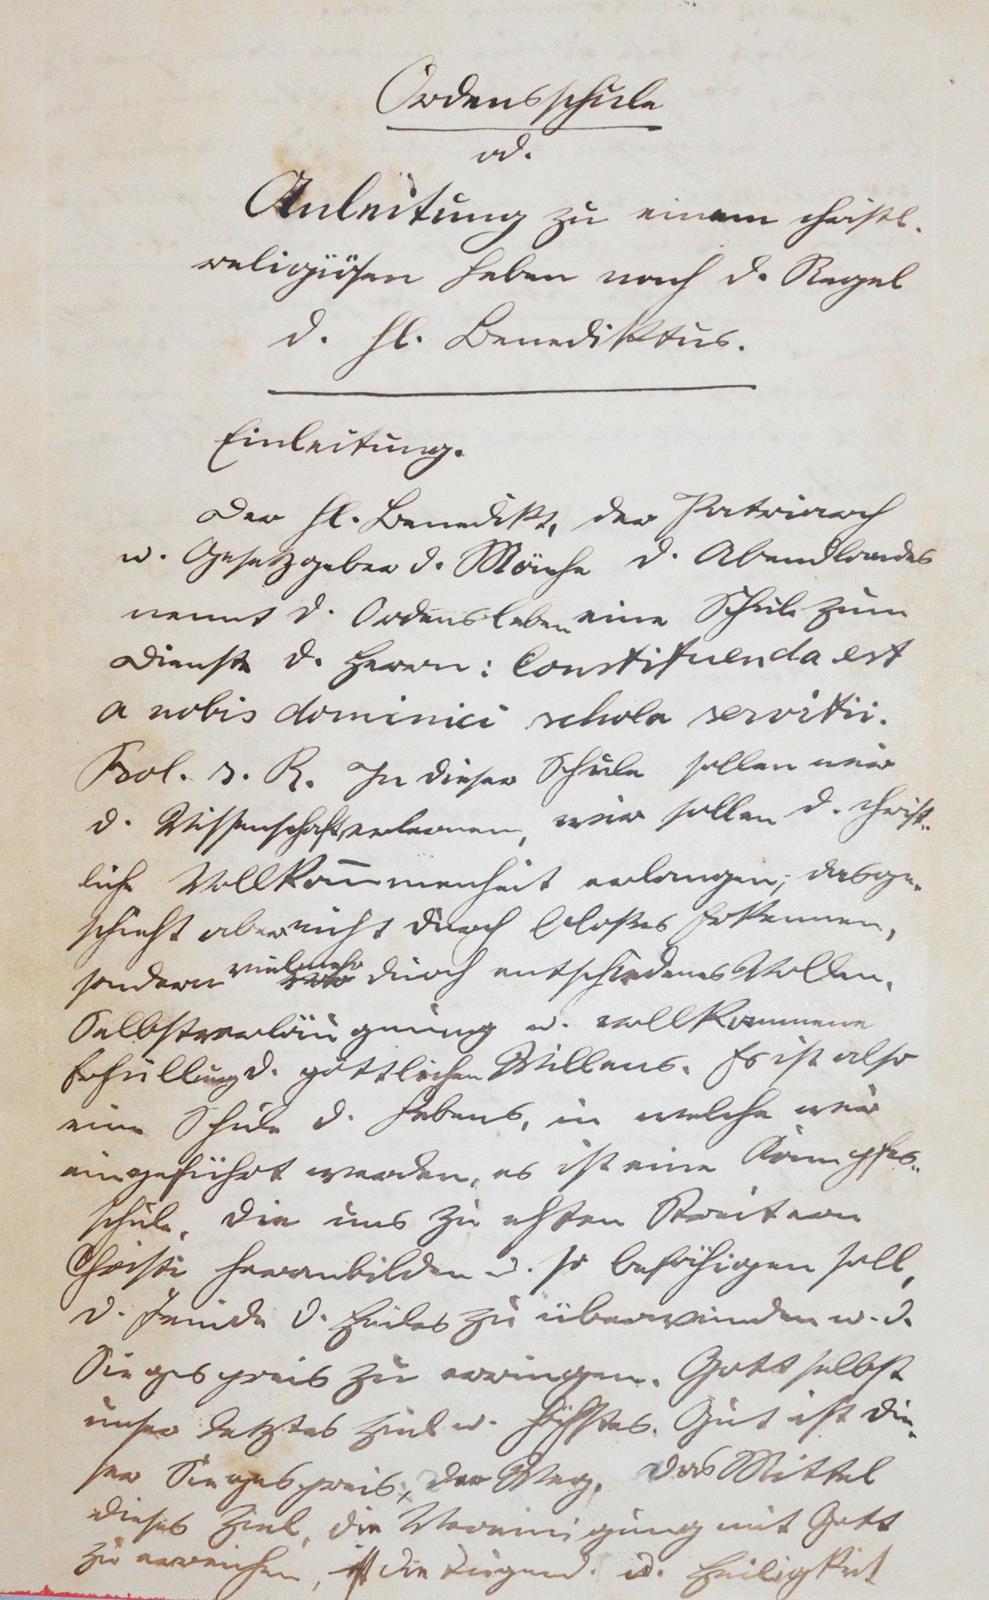 Ordensschule
od.
Anleitung zu einem christl.
religiösen Leben nach d. Regel
d. hl. Benediktus.
Einleitung.
Der hl. Benedikt, der Patriarch
u. Gesetzgeber d. Mönche d. Abendlandes
nennt d. Ordensleben eine Schule zum
Dienste d. Herrn: Constituenda est
a nobis dominici schola servitii.
Prol. s. R. In dieser Schule sollen wir
d. Wissenschaft erlernen, wir sollen d. christ-
liche Vollkommenheit erlangen; das ge-
schieht aber nicht durch bloßes Erkennen,
sondern vielmehr durch entschiedenes Wollen,
Selbstverläugnung u. vollkommene
Erfüllung d. göttlichen Willens. Es ist also
eine Schule d. Lebens, in welche wir
eingeführt werden, es ist eine Kampfes-
schule, die uns zu ächten Streitern
Christi heranbilden u. so befähigen soll,
d. Feinde d. Heiles zu überwinden u. d.
Siegespreis zu erringen. Gott selbst
unser letztes Ziel u. höchstes Gut ist die-
ser Siegespreis, der Weg, das Mittel
dieses Ziel, die Vereinigung mit Gott
zu erreichen, ist die Tugend u. Heiligkeit